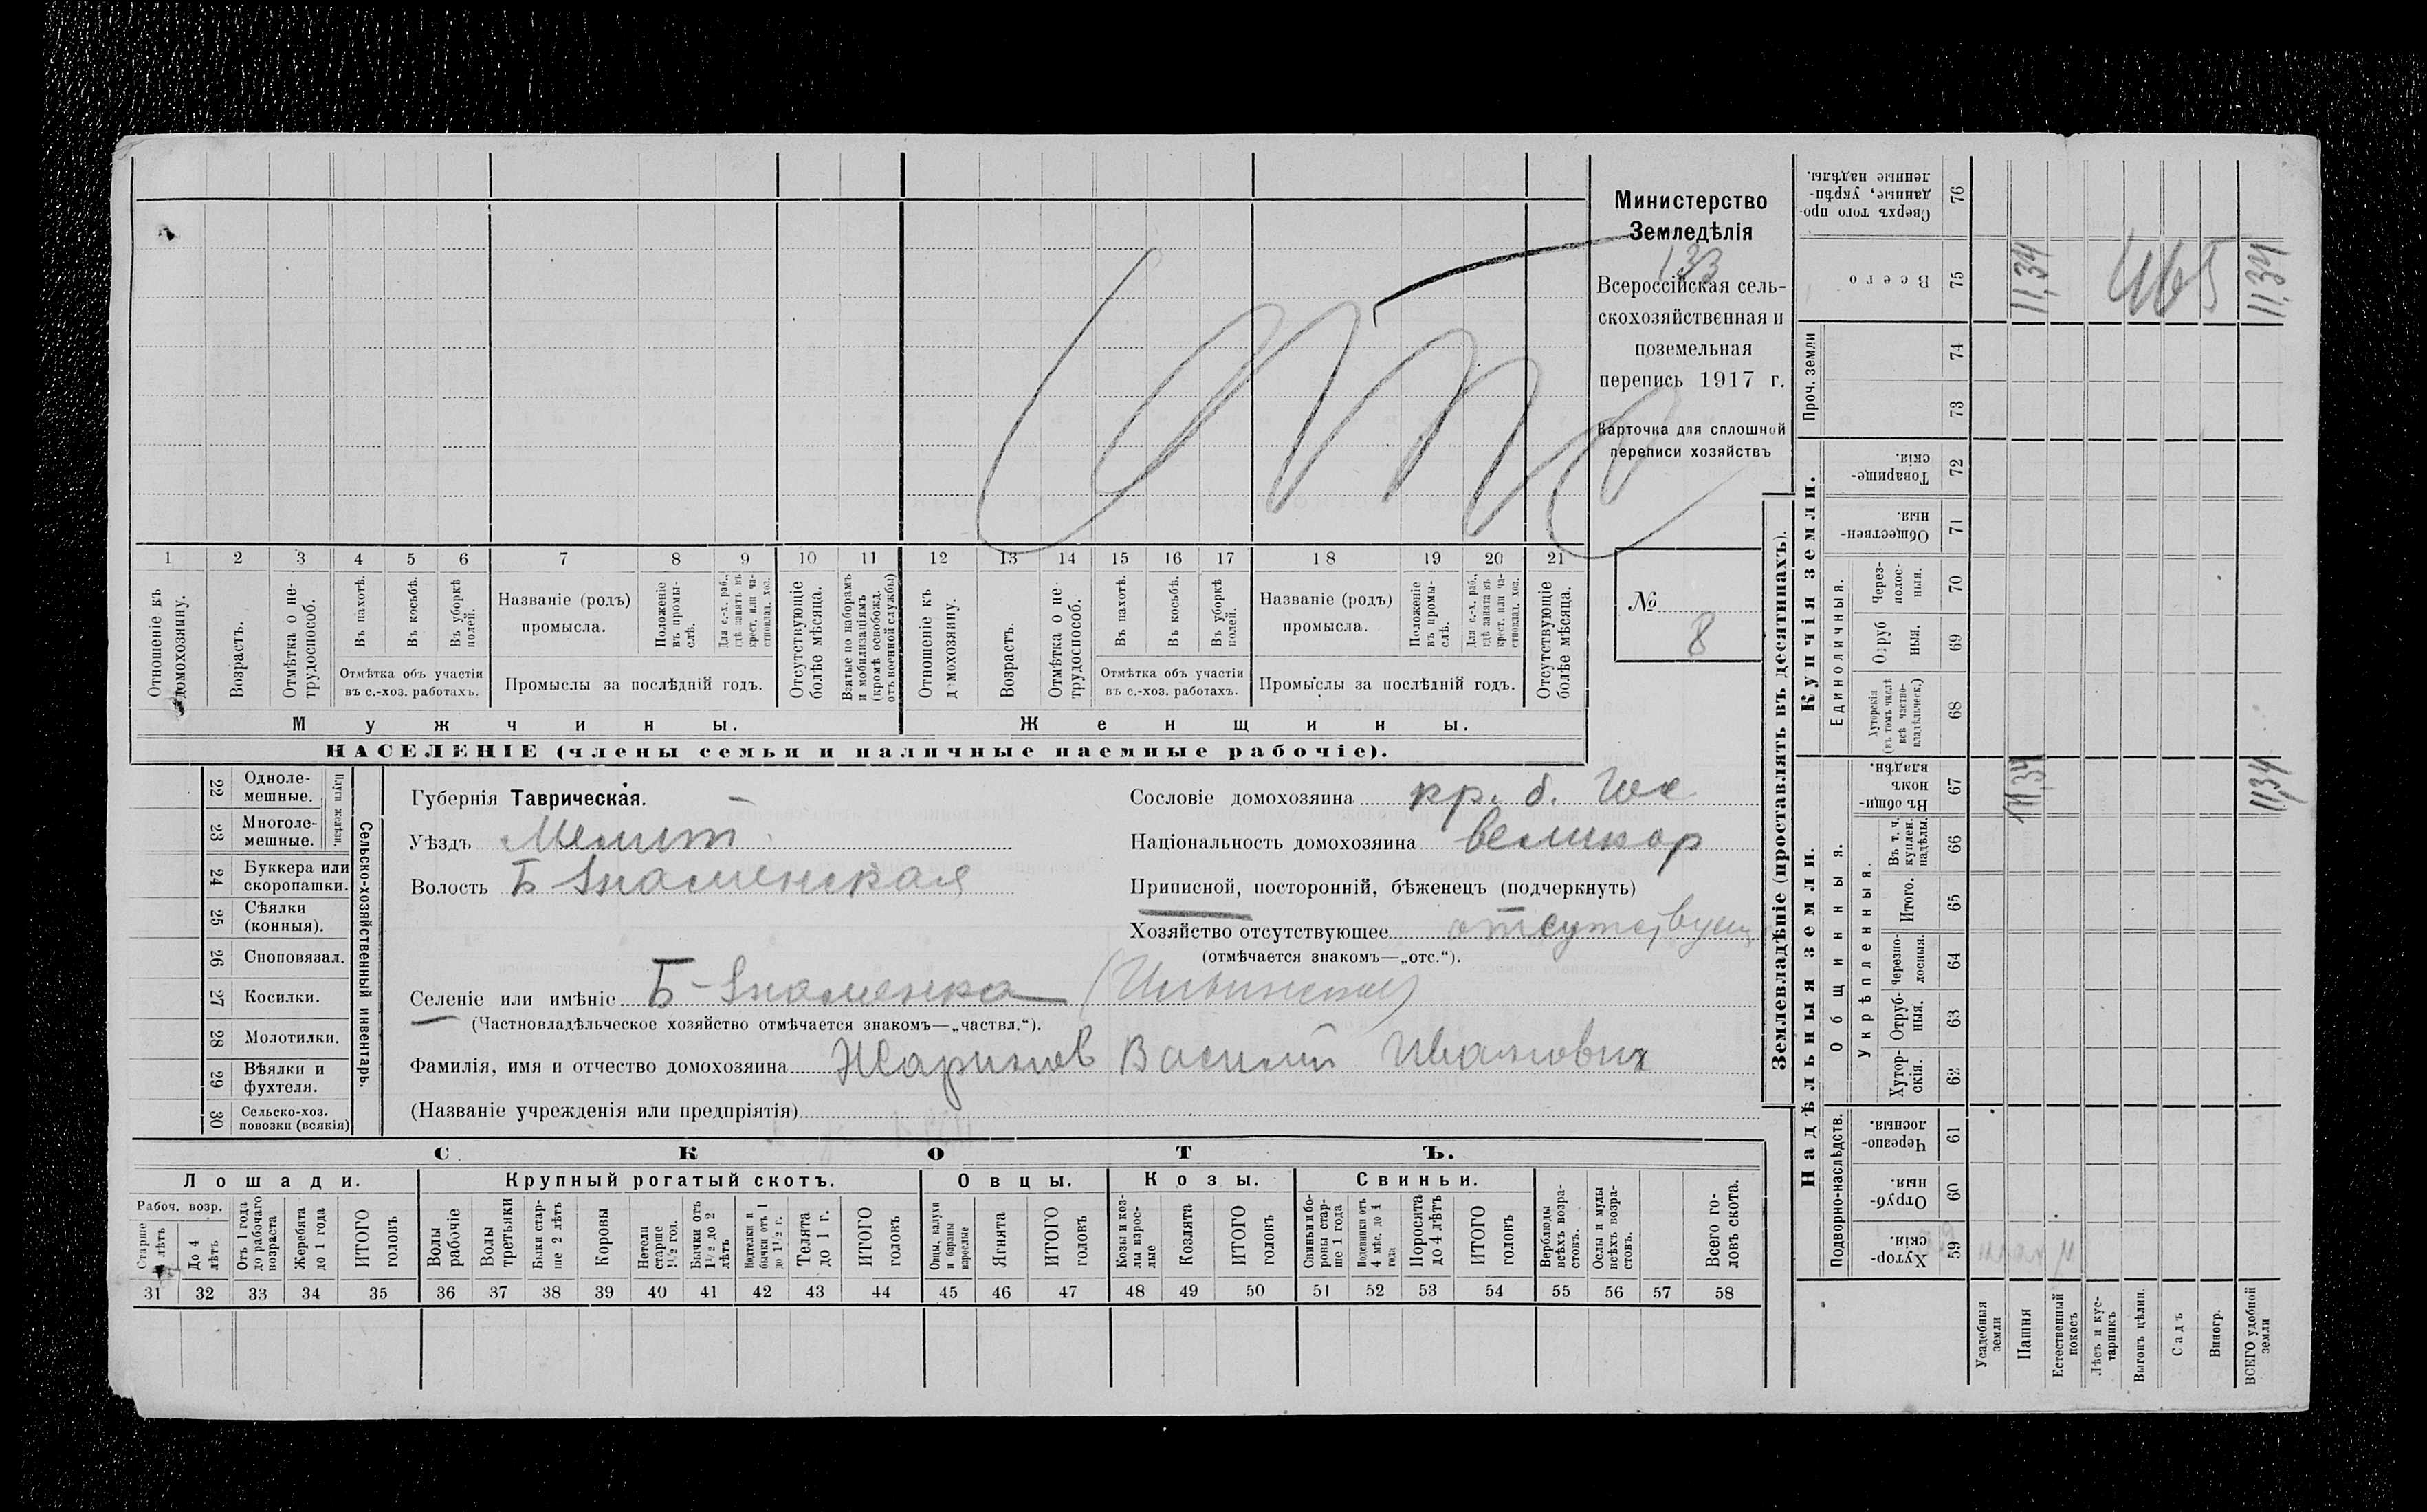 Министерство
Земледѣлія
133
Всероссійская сель-
скохозяйственная и
поземельная
перепись 1917 г.
Карточка для сплошной
переписи хозяйствъ
№ 8
1 2 3 4 5 6 7 8 9 10 11 12 13 14 15 16 17 18 19 20 21
Отношеніе къ домохозяину.
Возрастъ.
Отмѣтка о не-трудоспособ.
Въ пахотѣ.
Въ косьбѣ.
Въ уборкѣ полей.
Отмѣтка объ участіи
въ с.-хоз. работахъ.
Названіе (родъ)
промысла.
Положеніе въ промы-слѣ.
Для с.-х. раб., гдѣ занятъ въ крест. или ча-стновлад. хоз.
Промыслы за послѣдній годъ.
Отсутствующіе болѣе мѣсяца.
Взятые по наборамъ и мобилизаціямъ (кромѣ освобожд. отъ военной службы)
Отношеніе къ домохозяину.
Возрастъ.
Отмѣтка о не трудоспособ.
Въ пахотѣ.
Въ косьбѣ.
Въ уборкѣ полей.
Отмѣтка объ участіи
въ с.-хоз. работахъ.
Названіе (родъ)
промысла.
Положеніе въ промы-слѣ.
Для с.-х. раб., гдѣ занята въ крест. или ча-стновлад. хоз.
Промыслы за послѣдній годъ.
Отсутствующіе болѣе мѣсяца.
Мужчины.
Женщины.
НАСЕЛЕНІЕ (члены семьи и наличные наемные рабочіе).
22 Одноле-мешные.
23 Многоле-мешные.
Плуги желѣзн.
24 Буккера или скоропашки.
25 Сѣялки (конныя).
26 Сноповязал.
27 Косилки.
28 Молотилки.
29 Вѣялки и фухтеля.
30 Сельско-хоз. повозки (всякія)
Сельско-хозяйственный инвентарь.
Губернія Таврическая.
Уѣздъ Мелит.
Волость Б Знаменская
Сословіе домохозяина кр. б.
Національность домохозяина великор
Приписной, посторонній, бѣженецъ (подчеркнуть)
Хозяйство отсутствующее отсутствующ
(отмѣчается знакомъ—„отс.“).
Селеніе или имѣніе Б-Знаменка
(Частновладѣльческое хозяйство отмѣчается знакомъ—„частвл.“).
Фамилія, имя и отчество домохозяина Жаринов Василий Иванович
(Названіе учрежденія или предпріятія)
СКОТЪ.
Лошади.
Крупный рогатый скотъ.
Овцы.
Козы.
Свиньи.
Рабоч. возр.
Старше 4 лѣтъ
До 4 лѣтъ
Отъ 1 года до рабочаго возраста
Жеребята до 1 года
ИТОГО головъ
Волы рабочіе
Волы третьяки
Быки стар-ше 2 лѣтъ
Коровы
Нетели старше 1½ год.
Бычки отъ 1½ до 2 лѣтъ
Подтелки и бычки отъ 1 до 1½ г.
Телята до 1 г.
ИТОГО головъ
Овцы, валухи и бараны взрослые
Ягнята
ИТОГО головъ
Козы и коз-лы взрос-лые
Козлята
ИТОГО головъ
Свиньи и бо-ровы стар-ше 1 года
Подсвинки отъ 4 мѣс. до 1 года
Поросята до 4 лѣтъ
ИТОГО головъ
Верблюды всѣхъ возра-стовъ.
Ослы и мулы всѣхъ возра-стовъ.
Всего го-ловъ скота.
31 32 33 34 35 36 37 38 39 40 41 42 43 44 45 46 47 48 49 50 51 52 53 54 55 56 57 58
Землевладѣніе (проставлять въ десятинахъ).
Надѣльныя земли.
Купчія земли.
Проч. земли
Подворно-наслѣдств.
Общинныя.
Укрѣпленныя.
Единоличныя.
Хутор-скія. 59
Отруб-ныя. 60
Черезпо-лосныя. 61
Хутор-скія. 62
Отруб-ныя. 63
Черезпо-лосныя. 64
Итого. 65
Въ т. ч. куплен. надѣлы. 66
Въ общин-номъ владѣн. 67
Хуторскія (въ томъ числѣ всѣ частно-владѣльческ.) 68
Отруб ныя. 69
Через-полос-ныя. 70
Обществен-ныя. 71
Товарище-скія. 72
73
74
Всего 75
Сверхъ того про-данные, укрѣп-ленные надѣлы. 76
Усадебныя земли
Пашня 11,34 11,34
Естественный покосъ
Лѣсъ и кус-тарникъ
Выгонъ цѣлин.
Садъ
Виногр.
ВСЕГО удобной земли 11,34 11,34